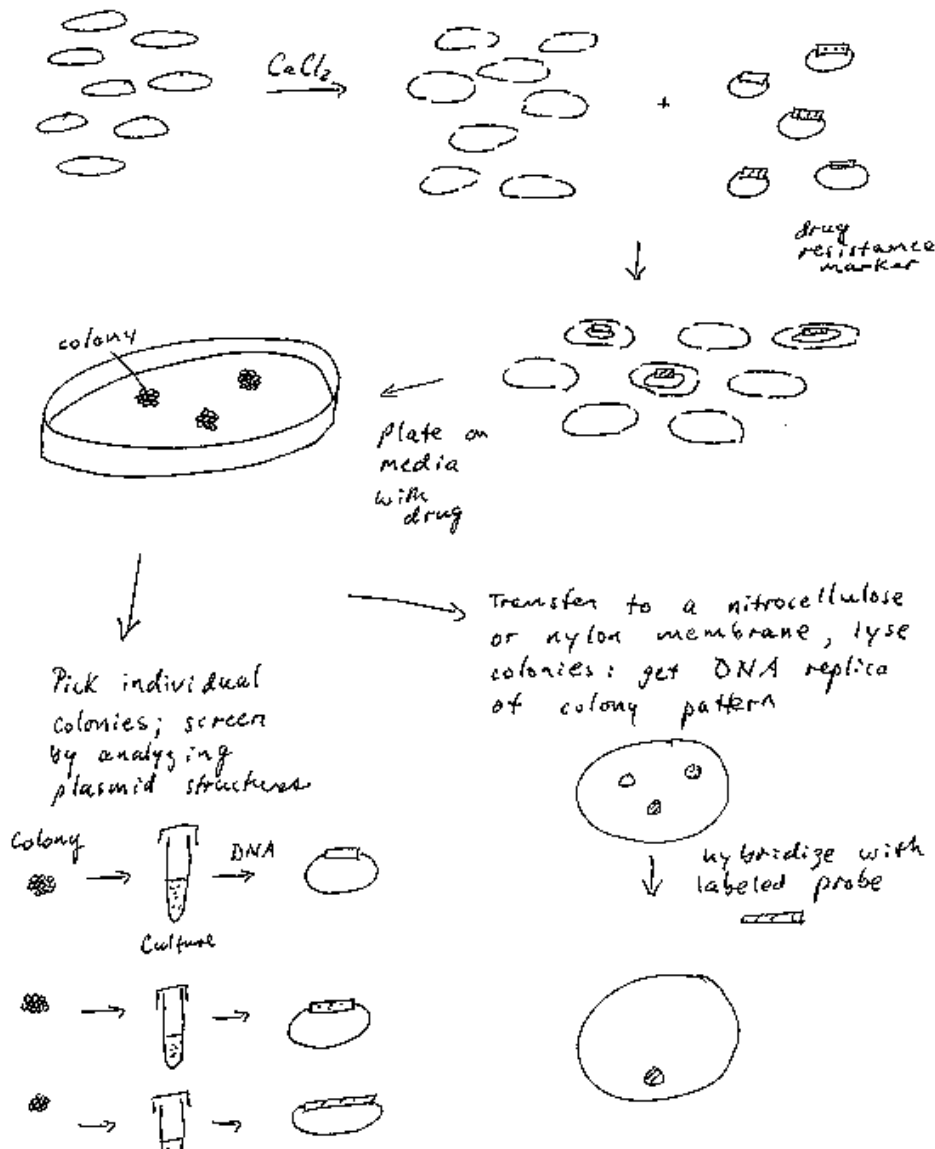 CaCl₂
+
drug
resistance
marker
colony
Plate on
media
with
drug
Transfer to a nitrocellulose
or nylon membrane, lyse
colonies: get DNA replica
of colony pattern
Pick individual
colonies; screen
by analyzing
plasmid structures
Colony
DNA
Culture
hybridize with
labeled probe